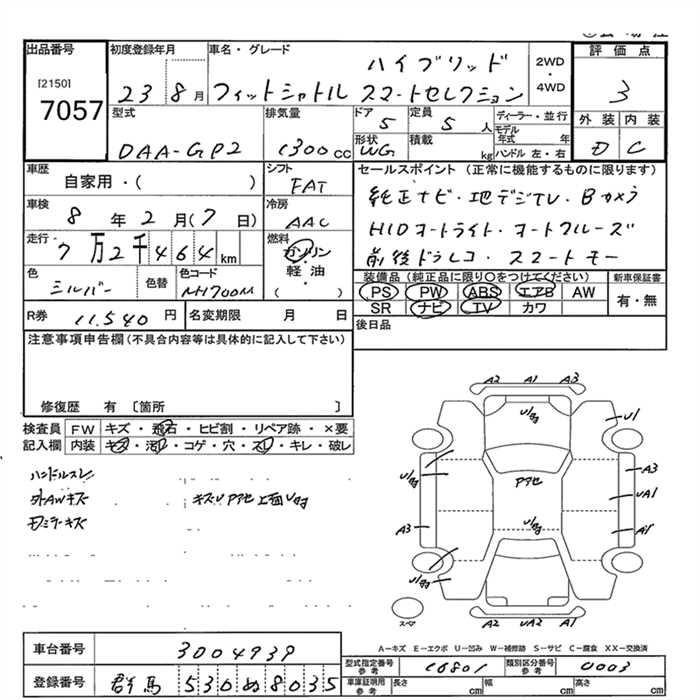 出品番号
[2150]
7057
初度登録年月
23 8月
車名・グレード
ハイブリッド
フィットシャトル スマートセレクション
2WD
・
4WD
評価点
3
型式
DAA-GP2
排気量
1300cc
ドア
5
定員
5人
形状
WG
積載
kg
ディーラー・並行
モデル年式 年
ハンドル 左・右
外装 内装
D C
車歴
自家用・( )
シフト
FAT
セールスポイント (正常に機能するものに限ります)
純正ナビ・地デジTV・Bカメラ
HIDオートライト・オートクルーズ
前後ドラレコ・スマートキー
車検
8年2月(7日)
冷房
AAC
走行
7万2千464km
燃料
ガソリン
・
軽油
( )
色
シルバー
色替
色コード
NH700M
装備品 (純正品に限り○をつけてください)
PS PW ABS エアB AW
SR ナビ TV カワ
新車保証書
有・無
R券
11,540円
名変期限 月 日
後日品
注意事項申告欄(不具合内容等は具体的に記入して下さい)
修復歴 有 〔箇所 〕
検査員記入欄
FW キズ・飛石・ヒビ割・リペア跡・×要
内装 キズ・汚れ・コゲ・穴・スレ・キレ・破レ
ハンドルスレ
外AWキズ
キズU Pアセ 上面
ミラーキズ
A2 A1 A3
U1
A3
UA1
A1
Pアセ
A3
A2 UA2 A1
スペア
A-キズ E-エクボ U-凹み W-補修跡 S-サビ C-腐食 XX-交換済
車台番号
3004939
登録番号
群馬 530 ぬ 8035
型式指定番号
参考
16801
類別区分番号
参考
0003
車庫証明用
参考
長さ cm
幅 cm
高さ cm